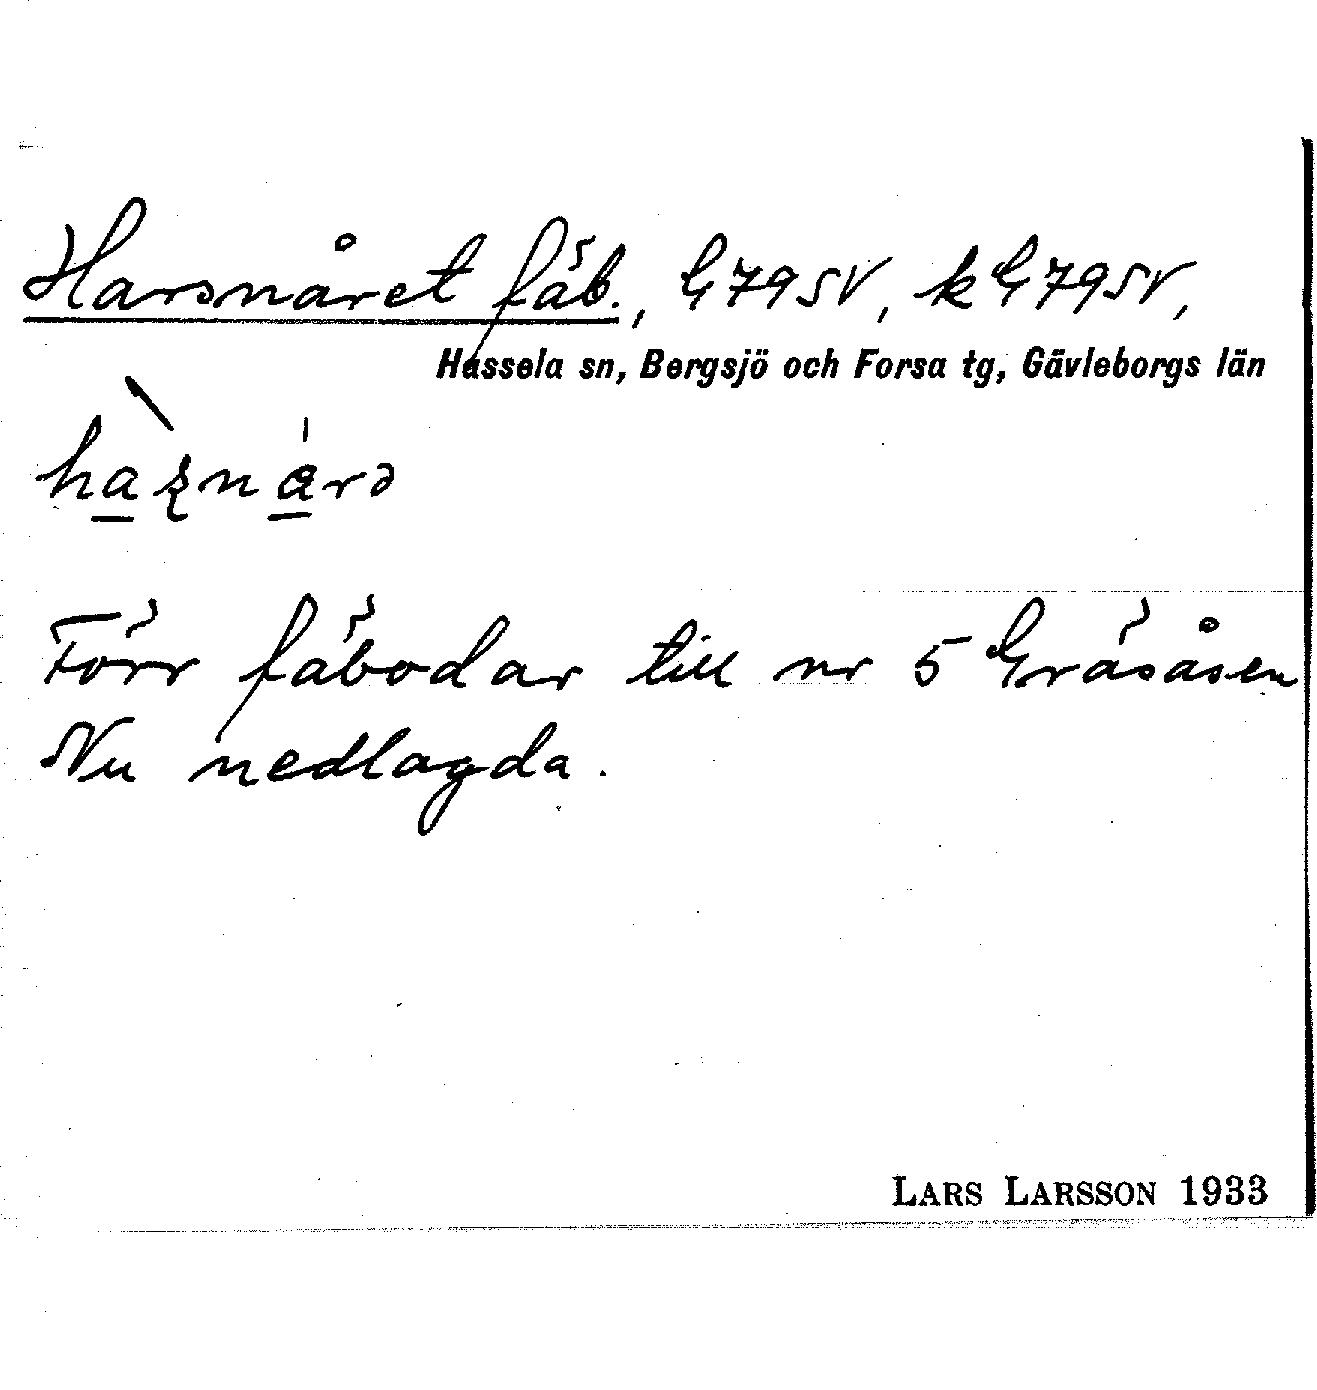 Harsnåret fäb., G79SV, kG79SV,
Hassela sn, Bergsjö och Forsa tg, Gävleborgs län
Förr fäbodar till nr 5 Gräsåsen
Nu nedlagda.
LARS LARSSON 1933